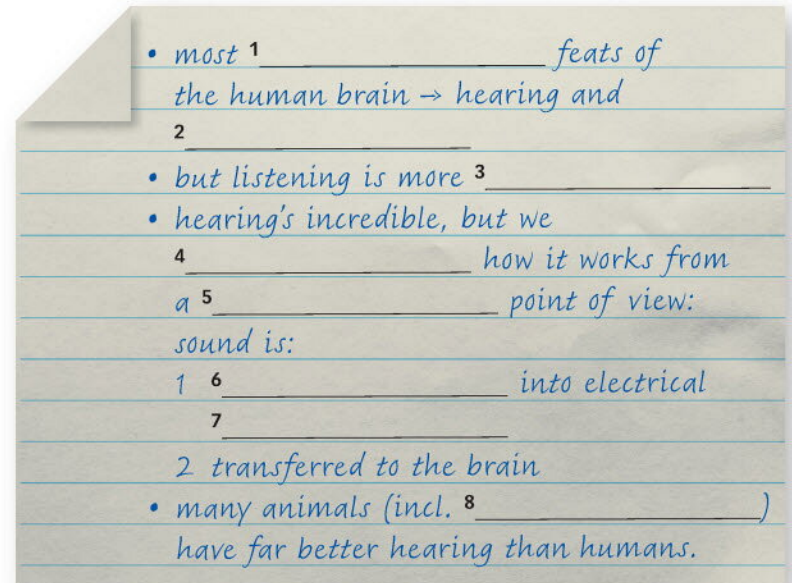 • most 1 ____________ feats of
the human brain → hearing and
2 ____________
• but listening is more 3 ____________
• hearing's incredible, but we
4 ____________ how it works from
a 5 ____________ point of view:
sound is:
1 6 ____________ into electrical
7 ____________
2 transferred to the brain
• many animals (incl. 8 ____________)
have far better hearing than humans.